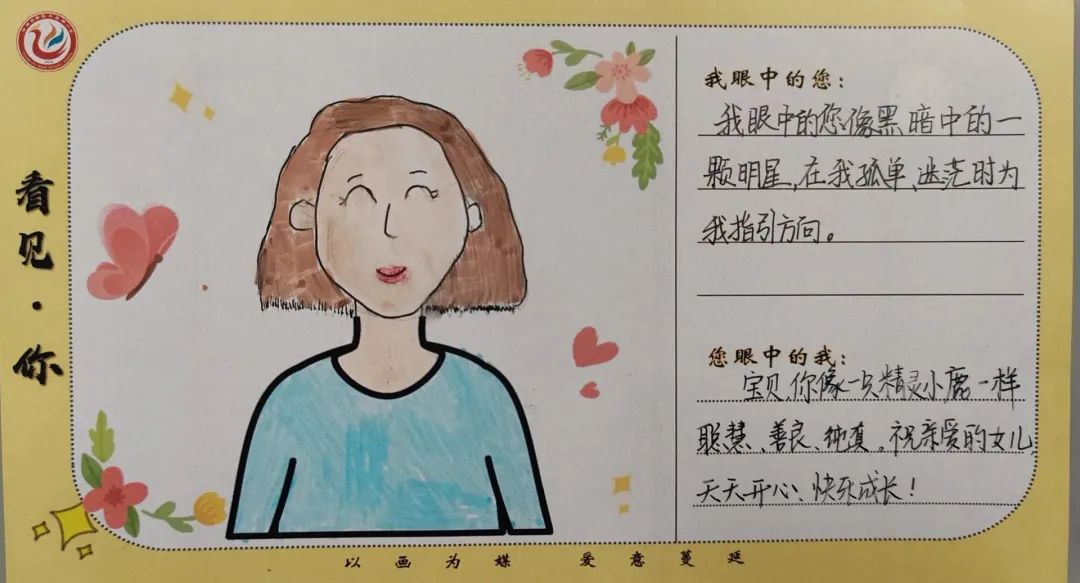 看见·你
我眼中的您：
我眼中的您像黑暗中的一
颗明星,在我孤单、迷茫时为
我指引方向。
您眼中的我：
宝贝你像一只精灵小鹿一样
聪慧、善良、纯真。祝亲爱的女儿
天天开心、快乐成长！
以画为媒 爱意蔓延